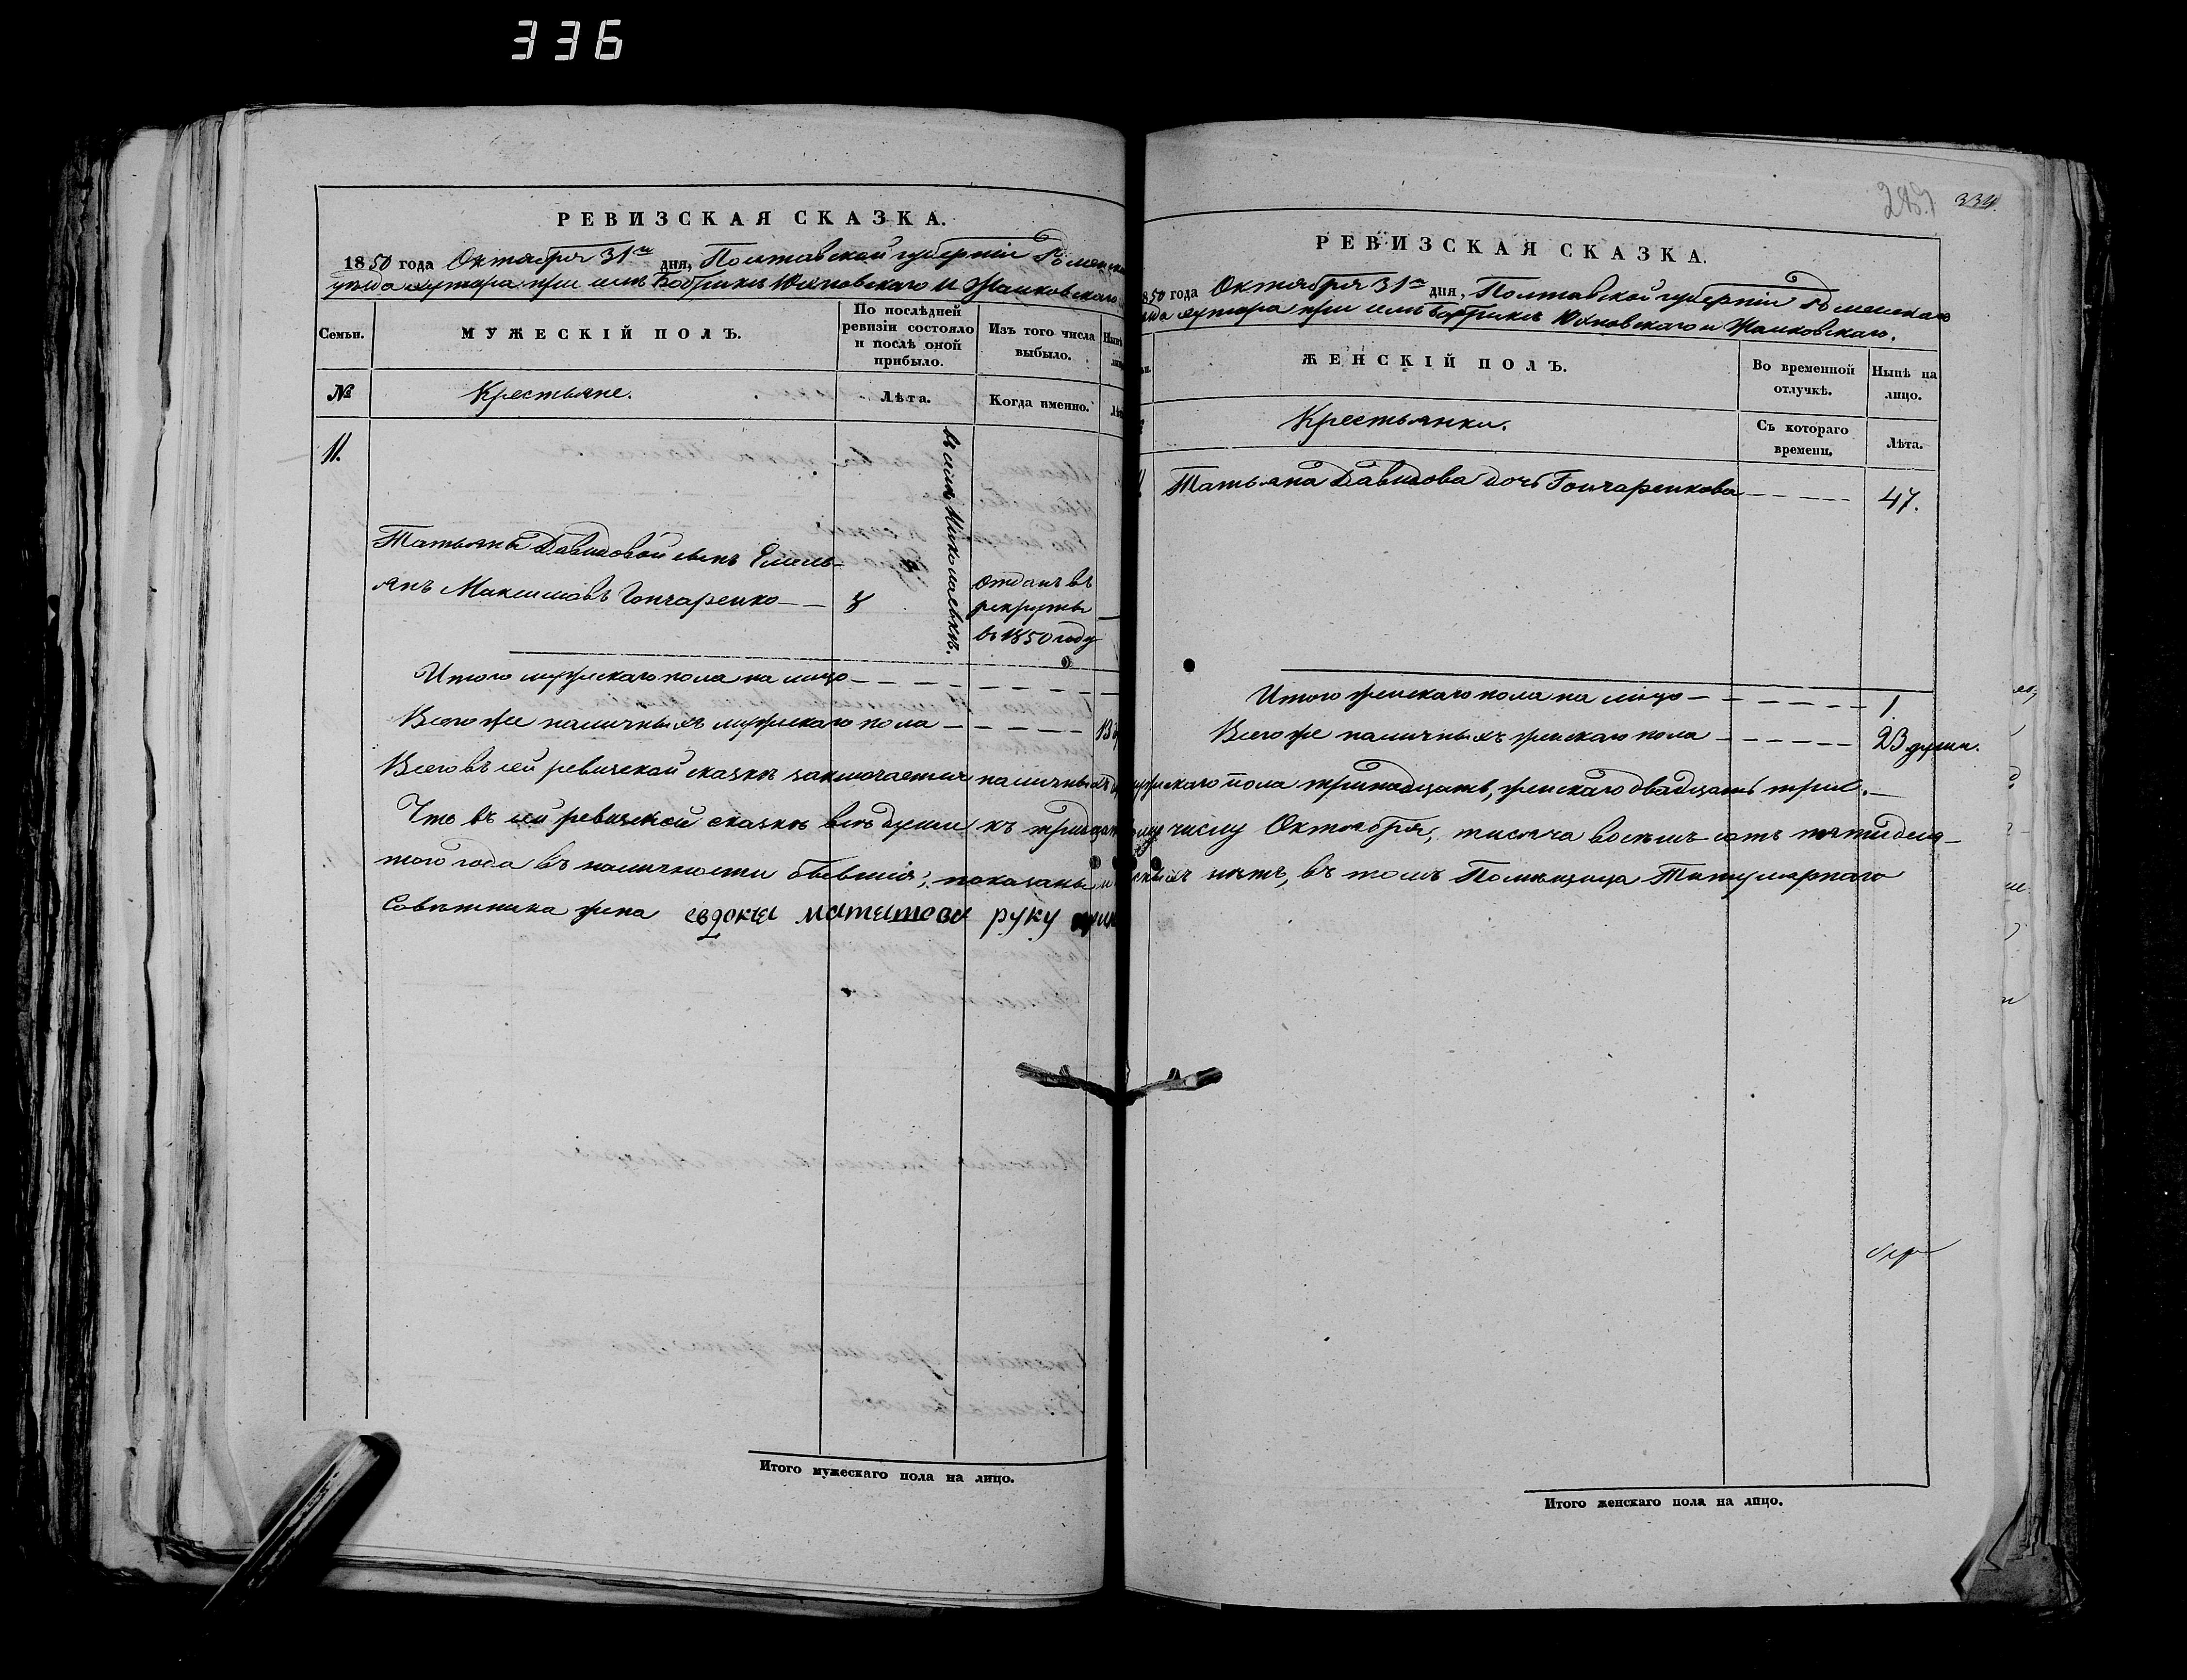 336
РЕВИЗСКАЯ СКАЗКА.
1850 года Октября 31го дня, Полтавской губерніи Роменска
уѣзда хутора при селѣ Бобрикѣ Юхновскаго и Жаковскаго
Семьи.
МУЖЕСКІЙ ПОЛЪ.
По послѣдней
ревизіи состояло
и послѣ оной
прибыло.
Изъ того числа
выбыло.
№
Крестьяне.
Лѣта.
Когда именно.
11.
въ селѣ Николаевкѣ.
Татьяны Давидовой сынъ Емель-
янъ Максимовъ Гончаренко
отданъ въ
рекруты
въ 1850 году
Итого мужескаго пола на лицо
Всего же наличныхъ мужескаго пола 13
Итого мужескаго пола на лицо.
245
334.
РЕВИЗСКАЯ СКАЗКА.
1850 года Октября 31го дня, Полтавской губерніи Роменскаго
хутора при селѣ Бобрикѣ Юхновскаго и Жаковскаго.
ЖЕНСКІЙ ПОЛЪ.
Во временной
отлучкѣ.
Нынѣ на
лицо.
Крестьянки.
Съ котораго
времени.
Лѣта.
Татьяна Давидова дочь Гончаренкова 47.
Итого женскаго пола на лицо 1.
Всего же наличныхъ женскаго пола 23 души.
Всего въ сей ревизской сказкѣ заключается наличныхъ мужскаго пола тринадцать, женскаго двадцать три.
Что въ сей ревизской сказкѣ всѣ души къ тридцать числу Октября, тысяча восемь сотъ пятидеся-
таго года въ наличности бывшія, показаны и нѣтъ, въ томъ Помѣщица Титулярнаго
Совѣтника жена руку
Итого женскаго пола на лицо.